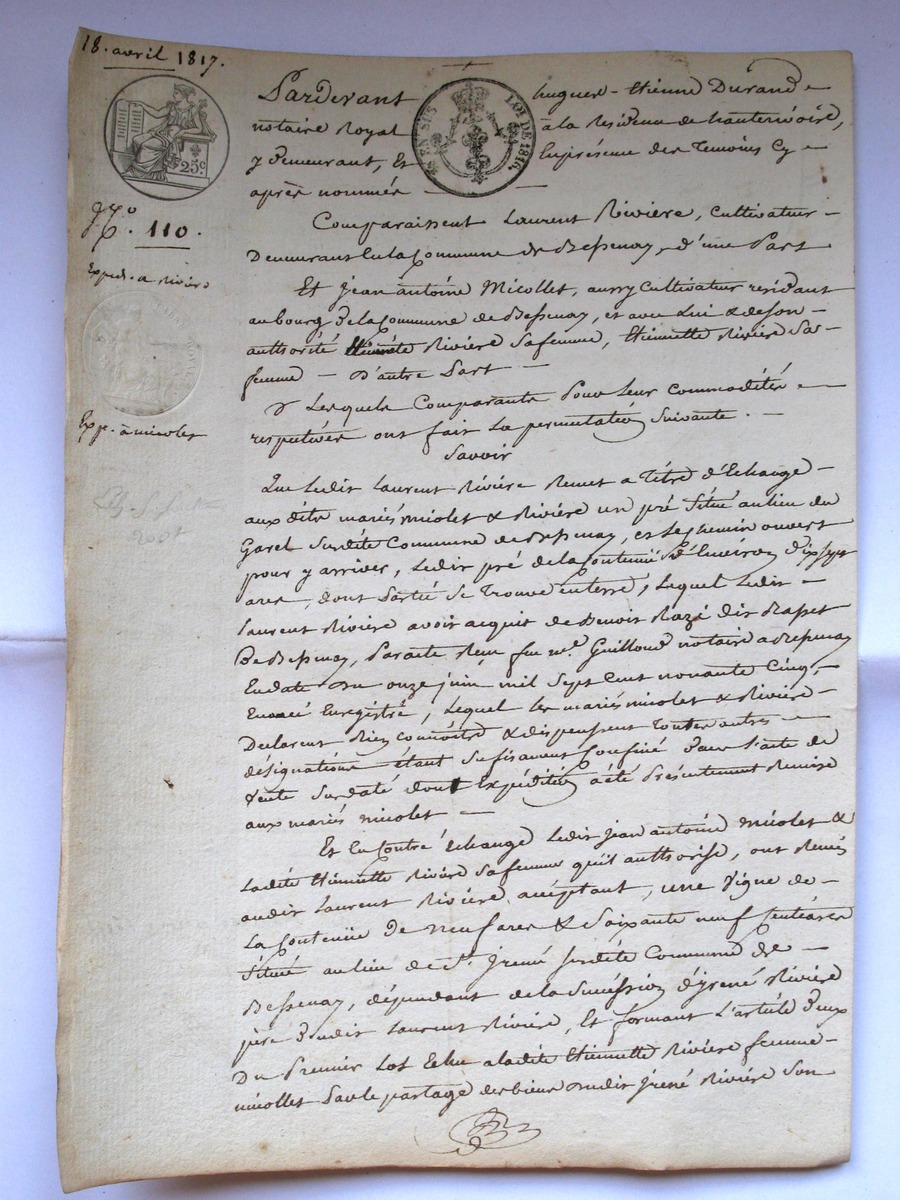 18. avril 1817.
25 c.
N.º 110.
Exped. a Rivière
Exp. à micolet
EN SUS
LOI DE 1816.
Pardevant hugues-Etienne Durand
notaire Royal à la Residence de hauterivoire,
y demeurant, Et En présence des Temoins Cy
après nommés
Comparaissent Laurent Rivière, cultivateur
Demeurant En la Commune de Bessenay, d'une Part
Et Jean antoine Micollet, aussy Cultivateur residant
au bourg de la Commune de Bessenay, et avec lui & de son
authorité Rivière Sa femme, Etiennette Rivière Sa
femme D'autre Part
Lesquels Comparants Pour Leur commodités
respectives ont fait La permutation Suivante.
Savoir
Que Ledit Laurent Rivière Remet a Titre d'Echange
aux dits mariés micolet & Rivière un pré Situé au lieu du
Garel Susdite Commune de Bessenay, et le chemin ouvert
pour y arriver, Ledit pré de la Contenue d'Environ dixsept
ares, dont Partie Se Trouve enterré, Lequel Ledit
Laurent Rivière avoir acquit de Benoit Razé dit
De Bessenay, Par acte Reçu feu m.e Guilloud notaire a Bessenay
En date du onze juin mil Sept Cent novante Cinq,
Enregistré, Lequel les mariés micolet & Rivière
Declarent Bien connoitre & dispensent Toutes autres
désignations étant Sufisament Confiné dans L'acte de
vente Susdaté dont Expédition a été Présentement Remise
aux mariés micolet
Et En Contré échange Ledit Jean antoine micolet &
Ladite Etiennette Rivière Sa femme qu'il authorise, ont Remis
audit Laurent Rivière acceptant, une vigne de
La Contenüe De neuf ares & Soixante neuf Centiares
Situé au lieu de S.t Irené Susdite Commune de
Bessenay, dépendant de la Succession d'irené Rivière
père dudit Laurent Rivière, Et formant L'article deux
Du Premier Lot Echu a ladite Etiennette Rivière femme
micollet Par le partage des biens dudit Irené Rivière Son